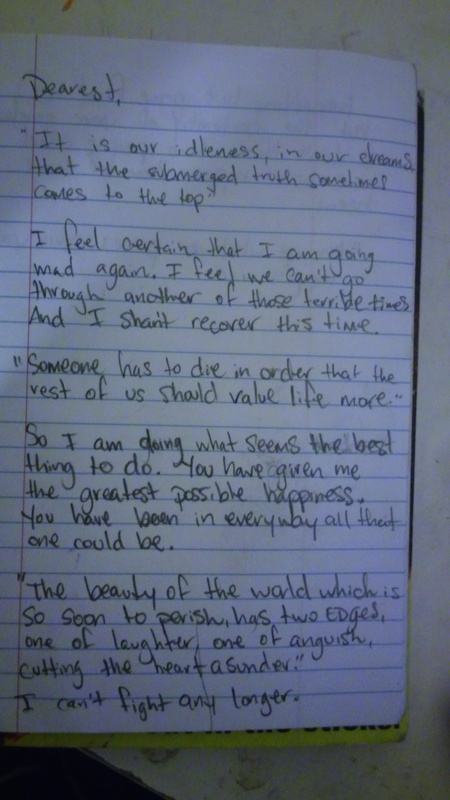 Dearest,
"It is our idleness, in our dreams,
that the submerged truth sometimes
comes to the top"
I feel certain that I am going
mad again. I feel we can't go
through another of those terrible times
And I shan't recover this time.
"Someone has to die in order that the
rest of us should value life more."
So I am doing what seems the best
thing to do. You have given me
the greatest possible happiness.
You have been in everyway all that
one could be.
"The beauty of the world which is
so soon to perish, has two EDGES,
one of laughter, one of anguish,
cutting the heart asunder."
I can't fight any longer.